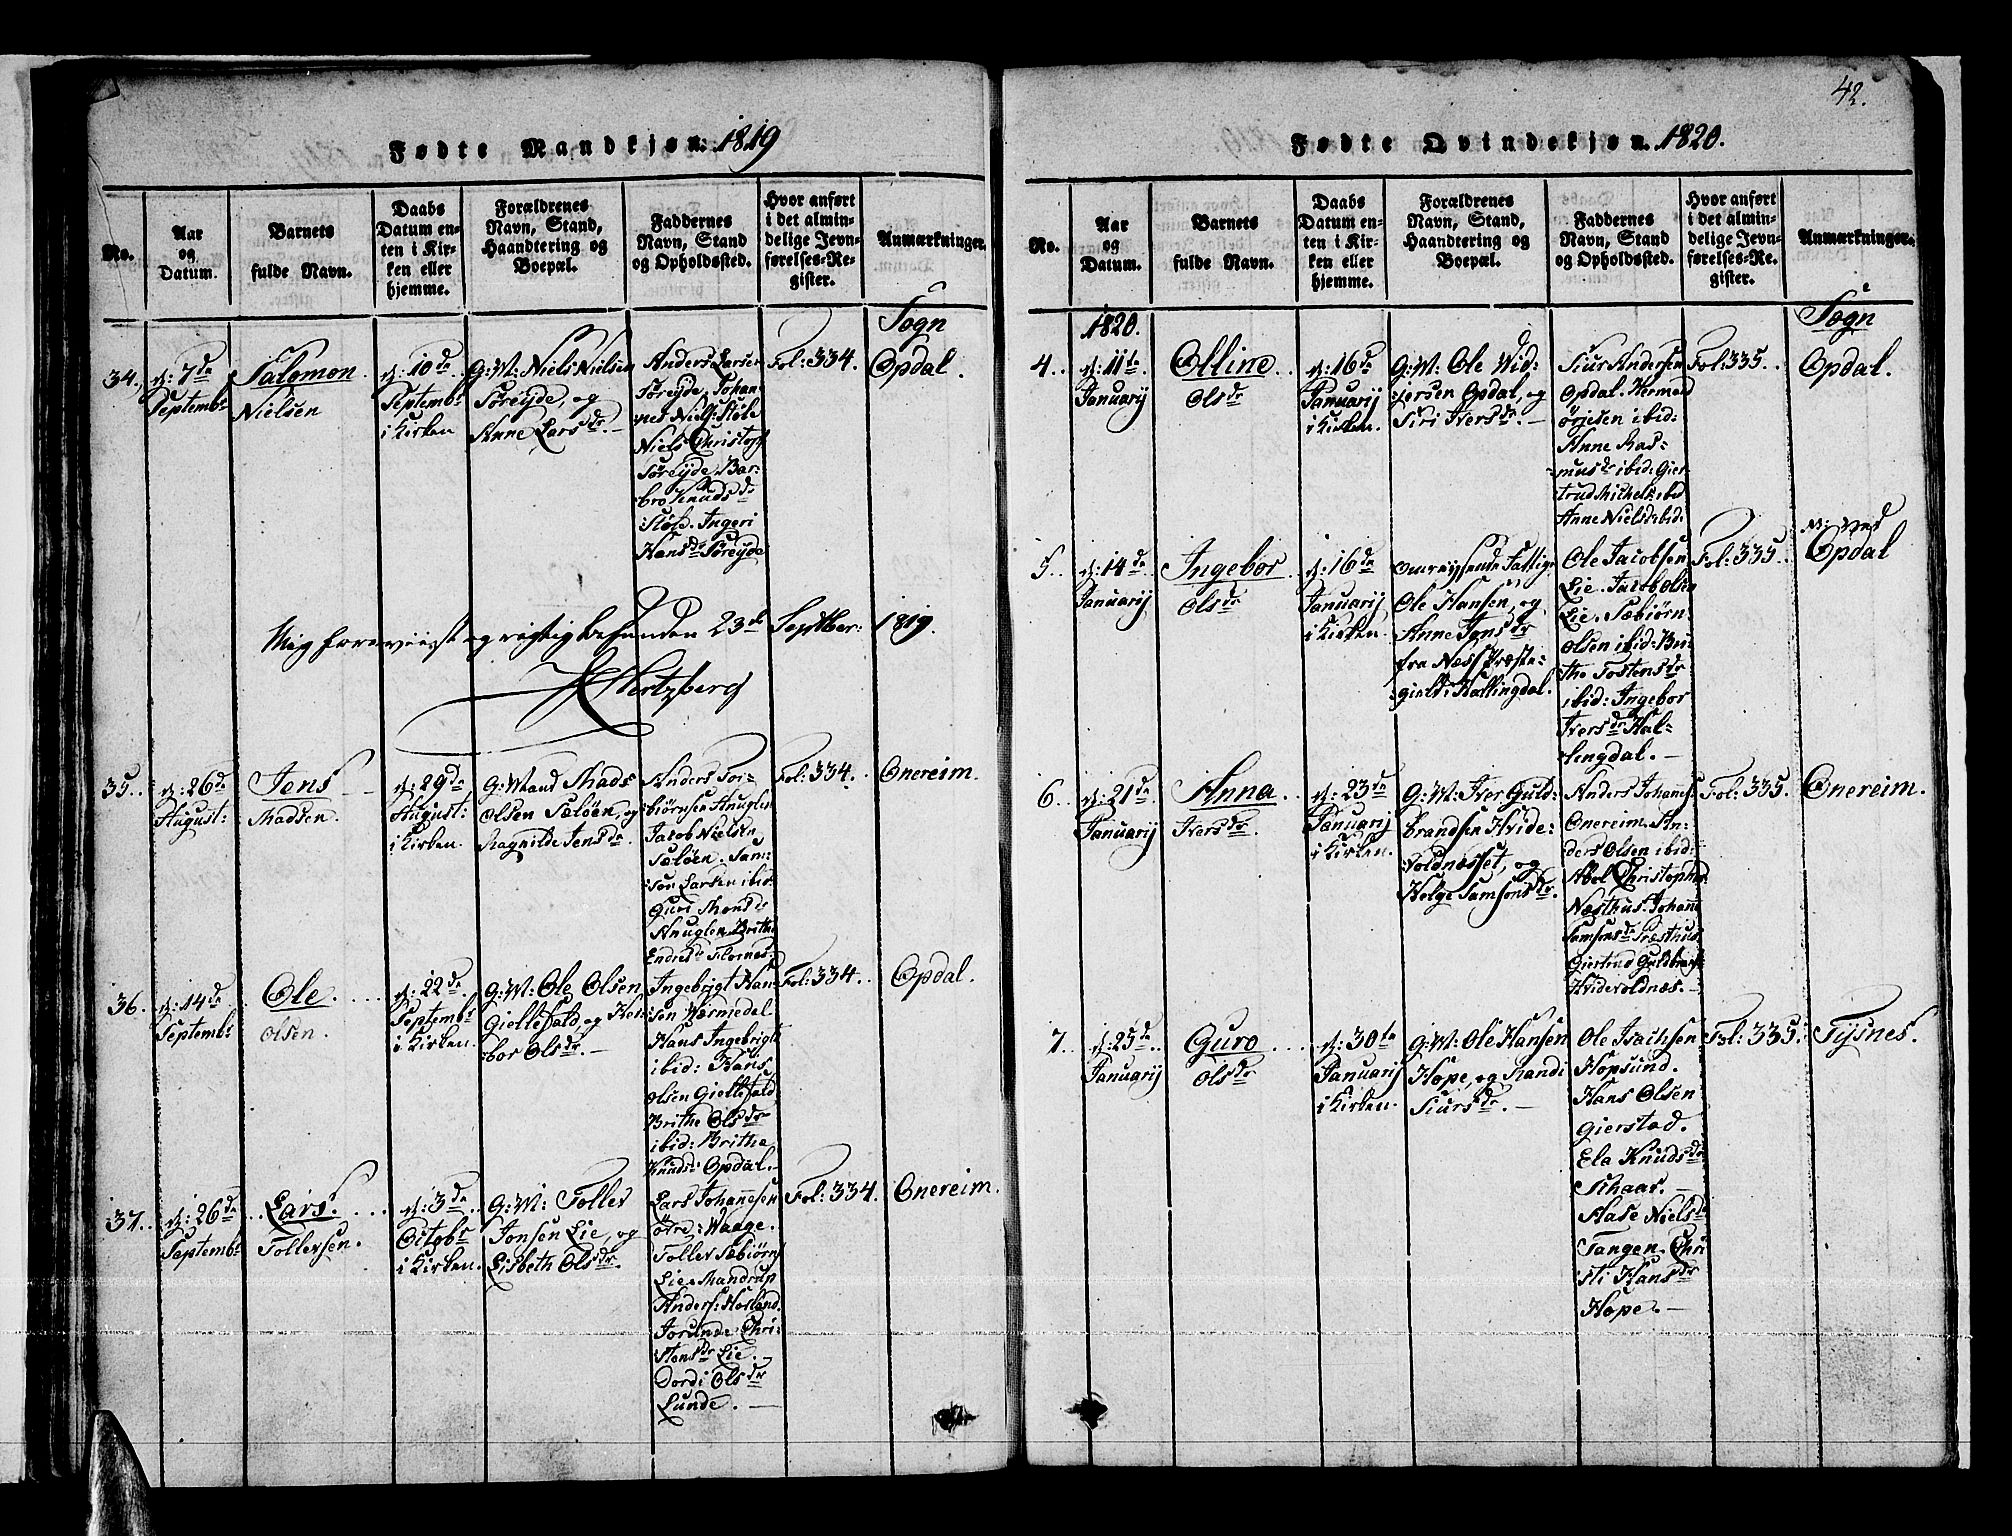 42.
Fødte Mandkjøn: 1819
No.
Aar
og
Datum.
Barnets
fulde Navn.
Daabs
Datum en-
ten i Kir-
ken eller
hjemme.
Forældrenes
Navn, Stand,
Haandtering og
Boepæl.
Faddernes
Navn, Stand
og Opholdssted.
Hvor anført
i det almin-
delige Jevn-
førelses-Re-
gister.
Anmærkninger.
34.
d: 7de
Septembr
Salomon
Nielsen
d: 10de
Septembr
i Kirken
G: M: Niels Nielsen
Søreyde, og
Anne Larsdr. –
Anders Larsen
Søreyde, Johan-
nes Niels: Støle
Niels Christoph
Søreyde, Bar-
bro Knudsdr
Støle. Ingeri
Hansdr Søreyde
Fol: 334.
Sogn
Opdal.
Mig foreviist og rigtig befunden 23de Septber: 1819.
Hertzberg
35.
d: 26de
August:
Jens
Madsen.
d: 29de
August:
i Kirken.
G: Mand Mads
Olsen Sæløen, og
Ragnilde Jensdr.
Anders Tor-
biørnsen Anuglen
Jacob Nielsen
Sæløen. Sam-
son Larsen ibid:
Guri Monsdr
Anuglen. Brithe
Endresdr Flornes.
Fol: 334.
Onereim.
36.
d: 14de
Septembr
Ole.
Olsen.
d: 22de
Septembr
i Kirken.
G: M: Ole Olsen
Giellefald, og
bor Olsdr. –
Ingebrigt Han
sen Wærmedal
Hans Ingebrigts
ibid: Hans
Olsen Giellefald
Brithe Olsdr
ibid: Brithe
Knuds: Opdal.
Fol: 334.
Opdal.
37.
d: 26de
Septembr
Lars.
Tollevsen.
d: 3de
Octobr
i Kirken.
G: M: Tollev
Jonsen Lie, og
Lisbeth Olsdr.
Lars Johannesen
øtre: Waage.
Tollev Sæbiørns
Lie. Mandrup
Anders: Hovland.
Jorunde Chri-
stensdr Lie.
Dordi Olsdr
Lunde. –
Fol: 334.
Onereim.
Fødte Qvindekjøn. 1820.
No.
Aar
og
Datum.
Barnets
fulde Navn.
Daabs
Datum en-
ten i Kir-
ken eller
hjemme.
Forældrenes
Navn, Stand,
Haandtering og
Boepæl.
Faddernes
Navn, Stand
og Opholdssted.
Hvor anført
i det almin-
delige Jevn-
førelses-Re-
gister.
Anmærkninger.
1820.
4.
d: 11te
Januarij
Olline
Olsdr
d: 16de
Januarij
i Kirken.
G: M: Ole Wid-
jersen Opdal, og
Siri Iversdr. –
Siur Andersen
Opdal. Herman
Ørjesen ibid:
Anne Ras-
musdr ibid: Gier-
trud Michels: ibid
Anne Niels: ibid:
Fol: 335.
Sogn
Opdal.
5.
d: 14de
Januarij
Ingebor
Olsdr
d: 16de
Januarij
i Kirken.
Omreysende Fattige
Ole Hansen, og
Anne Jonsdr
fra Næss Præste-
gield i Hallingdal.
Ole Jacobsen
Lie. Jacob Olsen
Lie. Sæbiørn
Olsen ibid: Bri-
the Tostensdr
ibid: Ingebor
Iversdr Hal-
lingdal. –
Fol: 335.
ved
Opdal
6.
d: 21de
Januarij
Anna
Iversdr
d: 23de
Januarij
i Kirken.
G: M: Iver Guld-
brandsen Hvide-
voldnæsset, og
Helge Samsonsdr.
Anders Johans:
Onereim. An-
ders Olsen ibid:
Abel Christophers
Næsthus. Johanne
Samsonsdr Præsthus
Giertrud Guldbrands
Hvidevoldnæs. –
Fol: 335.
Onereim.
7.
d: 25de
Januarij
Guro
Olsdr
d: 30te
Januarij
i Kirken.
G: M: Ole Hansen
Hope, og Randi
Siursdr. –
Ole Isachsen
Hopsund.
Hans Olsen
Gierstad.
Ela Knudsdr
Skaar. –
Aase Nielsdr
Tangen. Chri
sti Hansdr
Hope. –
Fol: 335.
Tysnes.